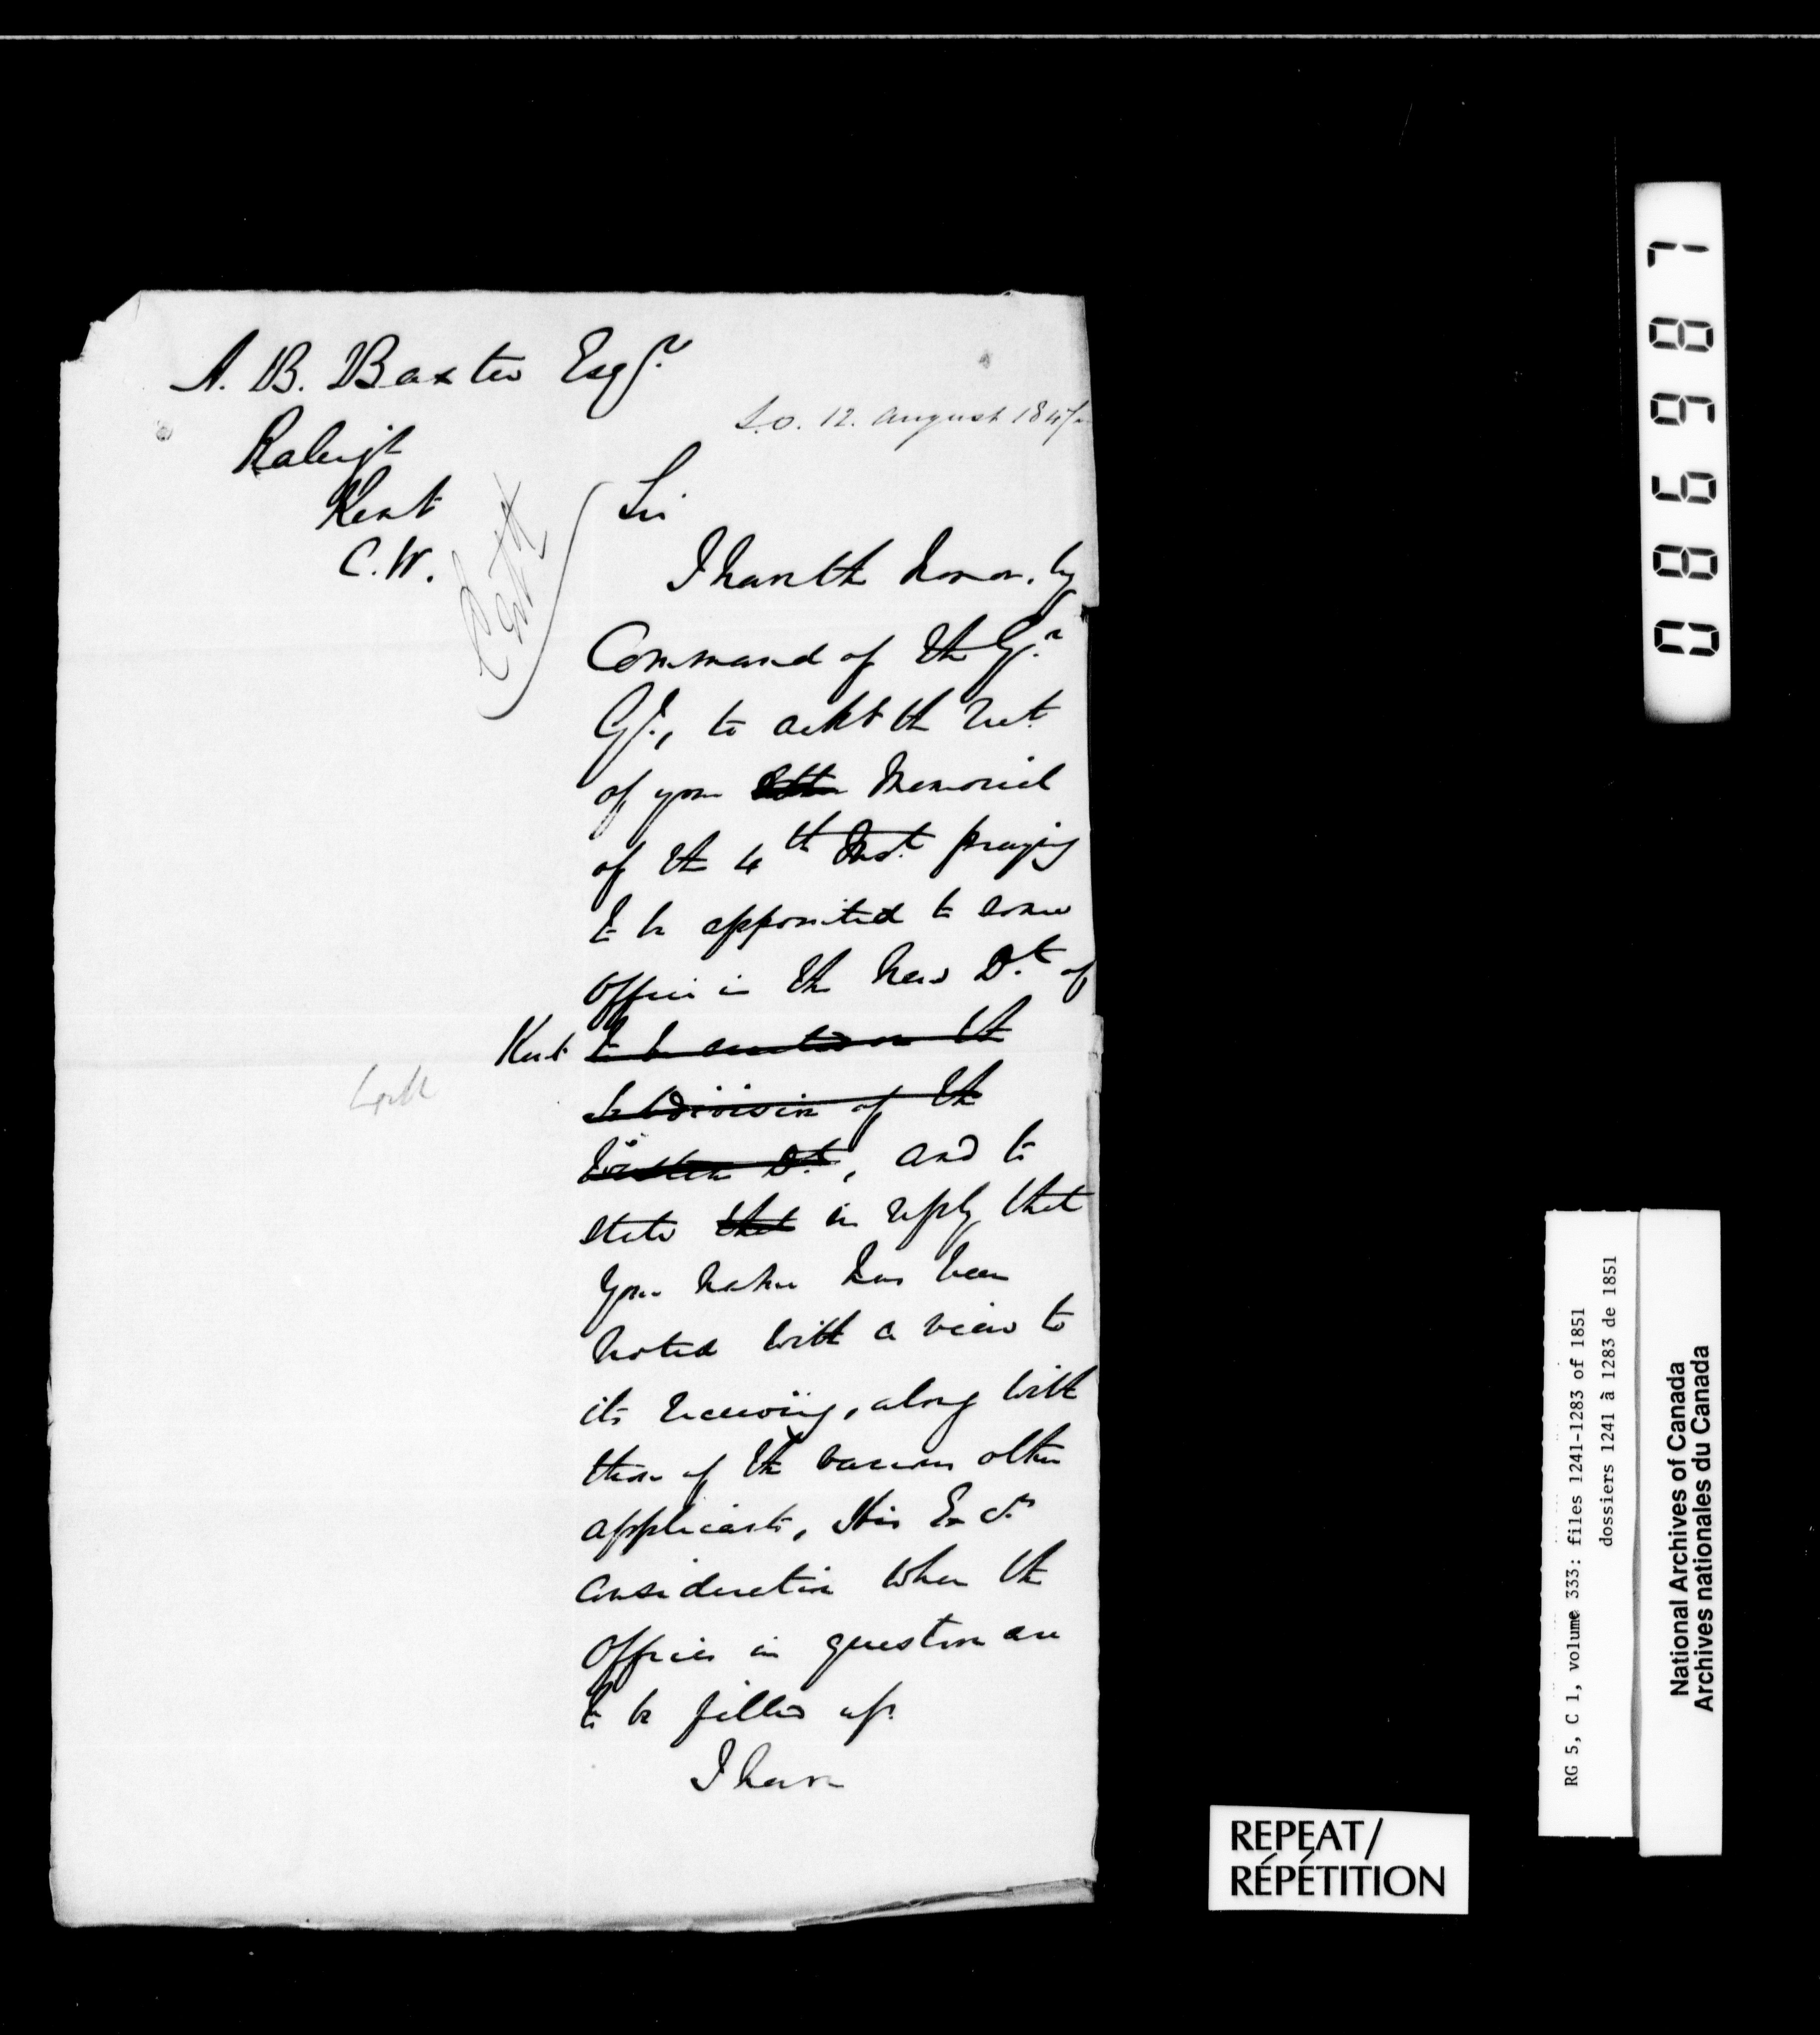 A. B. Baxter Esqr.
S.O. 12. August 184
Raleigh
Kent
C.W.
Sir
I have the honor, by
Command of the Gr.
Gl., to ackt the rect.
of your Memorial
of the 4th Inst. praying
to be appointed to some
office in the New Dt. of
Kent to be erected on the
Subdivision of the
Western Dt., and to
state that in reply that
your name has been
noted with a view to
its receiving, along with
those of the various other
applicants, His Excys
consideration when the
Offices in question are
to be filled up.
I have
086987
RG 5, C 1, volume 333: files 1241-1283 of 1851
dossiers 1241 à 1283 de 1851
National Archives of Canada
Archives nationales du Canada
REPEAT/
RÉPÉTITION